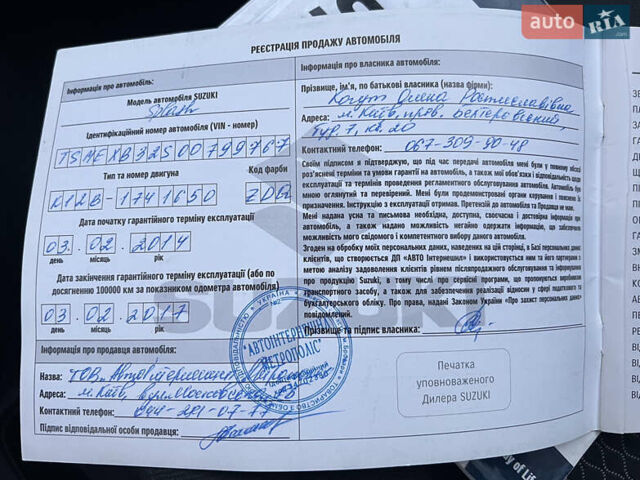 auto RIA.com
РЕЄСТРАЦІЯ ПРОДАЖУ АВТОМОБІЛЯ
Інформація про автомобіль:
Модель автомобіля SUZUKI
Splash
Ідентифікаційний номер автомобіля (VIN - номер)
TSMEXB32S00799767
Тип та номер двигуна
Код фарби
K12B-1741650
ZDG
Дата початку гарантійного терміну експлуатації
03. 02. 2014
день місяць рік
Дата закінчення гарантійного терміну експлуатації (або по
досягненню 100000 км за показником одометра автомобіля)
03. 02. 2017
день місяць рік
Інформація про продавця автомобіля:
Назва: ТОВ
Адреса: м. Київ,
Контактний телефон:
Підпис відповідальної особи продавця:
Інформація про власника автомобіля:
Прізвище, ім'я, по батькові власника (назва фірми):
Когут Олена Ростиславівна
Адреса: м. Київ, пров.
кв. 20
Контактний телефон: 067-309-90-48
Своїм підписом я підтверджую, що під час передачі автомобіля мені були у повному обсязі
роз'яснені терміни та умови гарантії на автомобіль, а також мої обов'язки і відповідальність щодо
експлуатації та термінів проведення регламентного обслуговування автомобіля. Автомобіль був
мною оглянутий та перевірений. Мені були продемонстровані органи керування і пояснені їх
призначення. Інструкції з експлуатації отримав. Претензій до автомобіля та Продавця не маю.
Мені надана усна та письмова необхідна, доступна, своєчасна і достовірна інформація про
автомобіль, а також надано можливість негайно одержати інформацію, що забезпечують
можливість мого свідомого і компетентного вибору даного автомобіля.
Згоден на обробку моїх персональних даних, наведених на цій сторінці, в Базі персональних даних
клієнтів, що створюється ДП «АВТО Інтернешнл» і використовується ним та його партнерами з
метою аналізу задоволення клієнтів рівнем післяпродажного обслуговування та інформування
про продукцію Suzuki, в тому числі про сервісні програми, що пропонуються виробником
транспортного засобу, а також для забезпечення реалізації відносин у сфері податкового та
бухгалтерського обліку. Про права, надані Законом України «Про захист персональних даних»
повідомлений.
Прізвище та підпис власника:
Печатка
уповноваженого
Дилера SUZUKI
SUZUKI
УКРАЇНА
"АВТОІНТЕРНЕШНЛ
МЕТРОПОЛІС"
y of Life